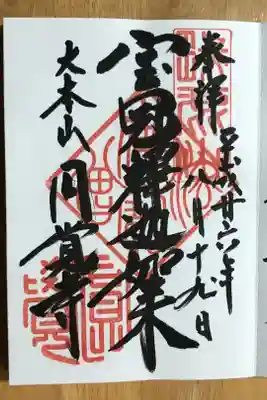 奉拝
平成廿六年
八月十九日
宝冠釋迦如来
大本山
円覚寺